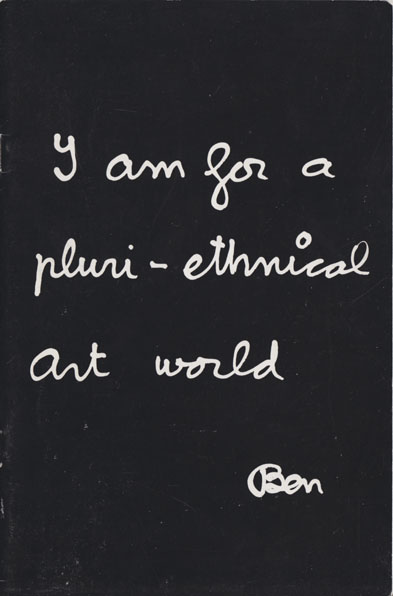 I am for a
pluri-ethnical
art world
Ben